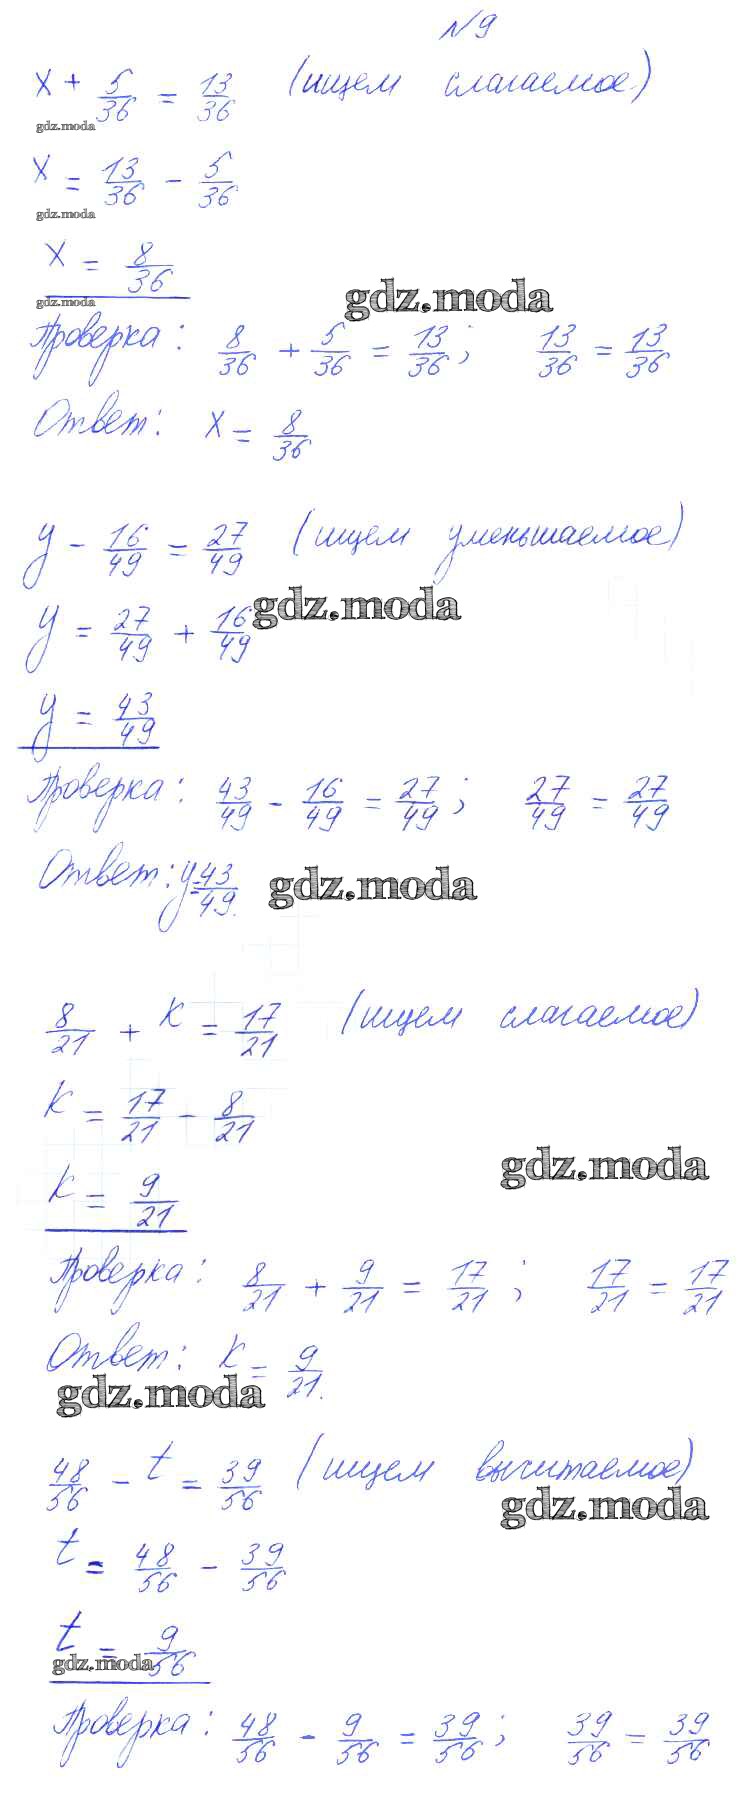 №9
x + 5/36 = 13/36 (ищем слагаемое)
gdz.moda
x = 13/36 - 5/36
gdz.moda
x = 8/36
gdz.moda
gdz.moda
Проверка: 8/36 + 5/36 = 13/36; 13/36 = 13/36
Ответ: x = 8/36
y - 16/49 = 27/49 (ищем уменьшаемое)
gdz.moda
y = 27/49 + 16/49
y = 43/49
Проверка: 43/49 - 16/49 = 27/49; 27/49 = 27/49
Ответ: y = 43/49.
gdz.moda
8/21 + k = 17/21 (ищем слагаемое)
k = 17/21 - 8/21
gdz.moda
k = 9/21
Проверка: 8/21 + 9/21 = 17/21; 17/21 = 17/21
Ответ: k = 9/21.
gdz.moda
48/56 - t = 39/56 (ищем вычитаемое)
gdz.moda
t = 48/56 - 39/56
t = 9/56
gdz.moda
Проверка: 48/56 - 9/56 = 39/56; 39/56 = 39/56